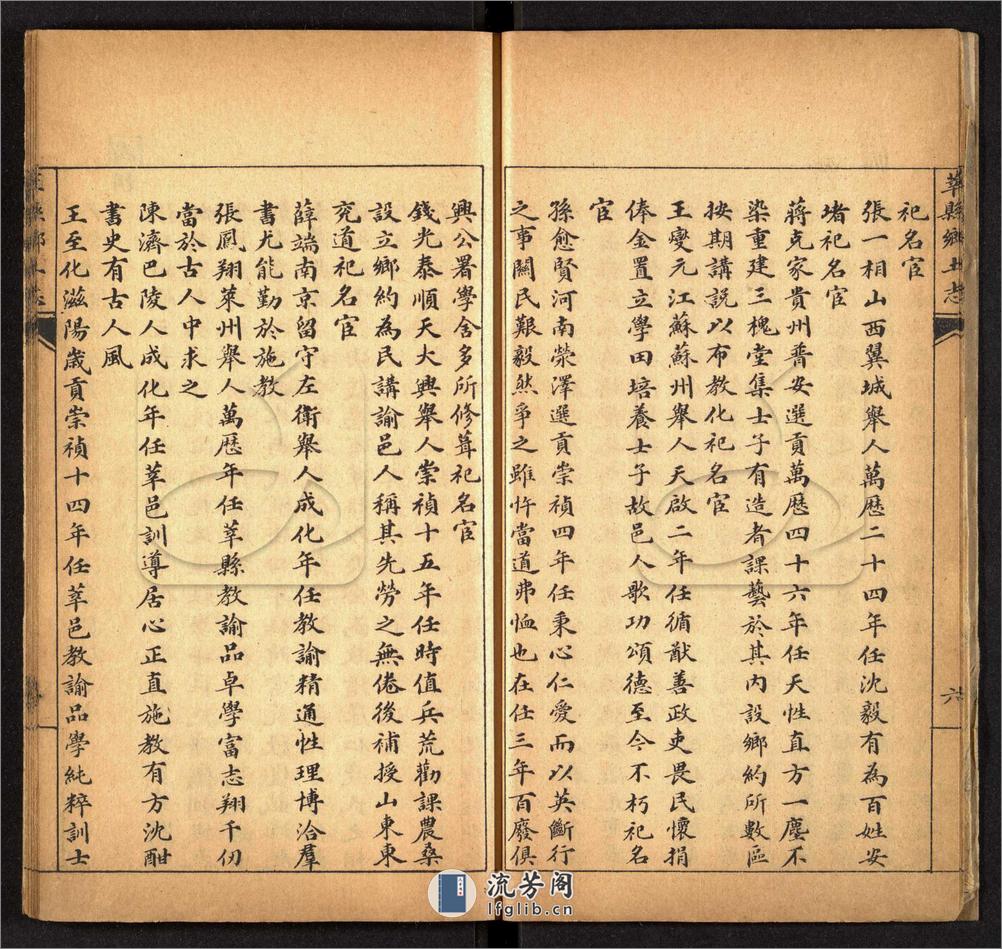 莘縣鄉土志
六
祀名宦
張一相山西翼城舉人萬歷二十四年任沈毅有為百姓安
堵祀名宦
蔣克家貴州普安選貢萬歷四十六年任天性直方一塵不
染重建三槐堂集士子有造者課藝於其內設鄉約所數區
按期講說以布教化祀名宦
王燮元江蘇蘇州舉人天啟二年任循猷善政吏畏民懷捐
俸金置立學田培養士子故邑人歌功頌德至今不朽祀名
宦
孫愈賢河南滎澤選貢崇禎四年任秉心仁愛而以英斷行
之事關民艱毅然爭之雖忤當道弗恤也在任三年百廢俱
興公署學舍多所修葺祀名宦
錢光泰順天大興舉人崇禎十五年任時值兵荒勸課農桑
設立鄉約為民講諭邑人稱其先勞之無倦後補授山東東
兖道祀名宦
薛端南京留守左衛舉人成化年任教諭精通性理博洽羣
書尤能勤於施教
張鳳翔萊州舉人萬歷年任莘縣教諭品卓學富志翔千仞
當於古人中求之
陳濟巴陵人成化年任莘邑訓導居心正直施教有方沈酣
書史有古人風
王至化滋陽歲貢崇禎十四年任莘邑教諭品學純粹訓士
流芳阁
lfglib.cn